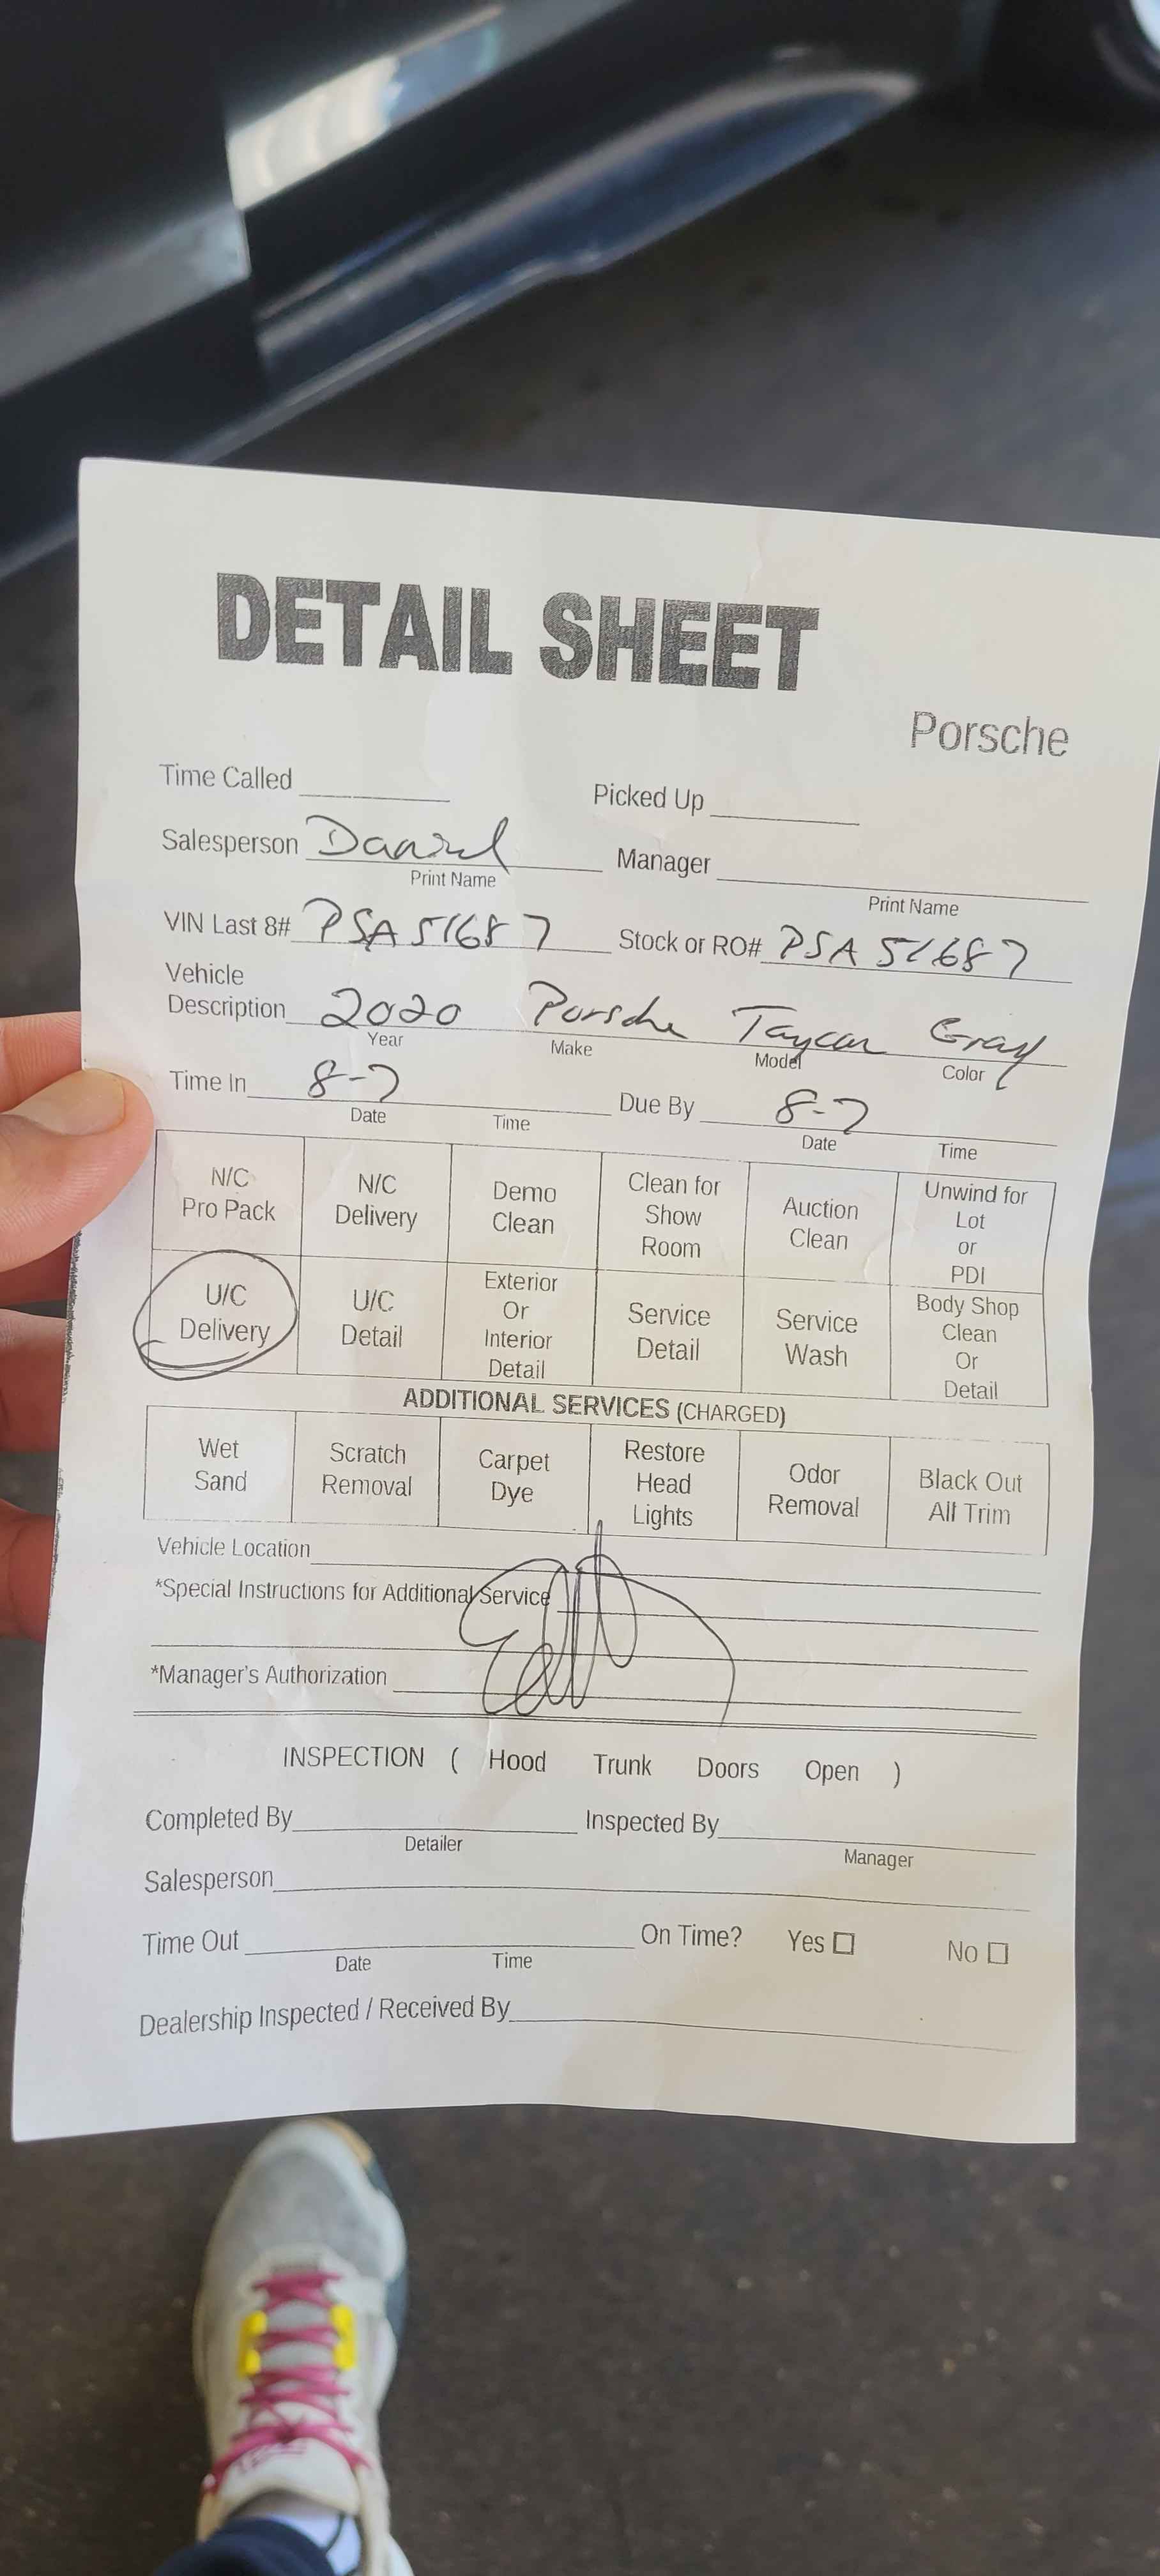 DETAIL SHEET
Porsche
Time Called Picked Up
Salesperson Daniel Manager
Print Name Print Name
VIN Last 8# PSA51687 Stock or RO# PSA51687
Vehicle
Description 2020 Porsche Taycan Gray
Year Make Model Color
Time In 8-7 Due By 8-7
Date Time Date Time
N/C Pro Pack
N/C Delivery
Demo Clean
Clean for Show Room
Auction Clean
Unwind for Lot or PDI
U/C Delivery
U/C Detail
Exterior Or Interior Detail
Service Detail
Service Wash
Body Shop Clean Or Detail
ADDITIONAL SERVICES (CHARGED)
Wet Sand
Scratch Removal
Carpet Dye
Restore Head Lights
Odor Removal
Black Out All Trim
Vehicle Location
*Special Instructions for Additional Service
*Manager's Authorization
INSPECTION ( Hood Trunk Doors Open )
Completed By Inspected By
Detailer Manager
Salesperson
Time Out On Time? Yes No
Date Time
Dealership Inspected / Received By